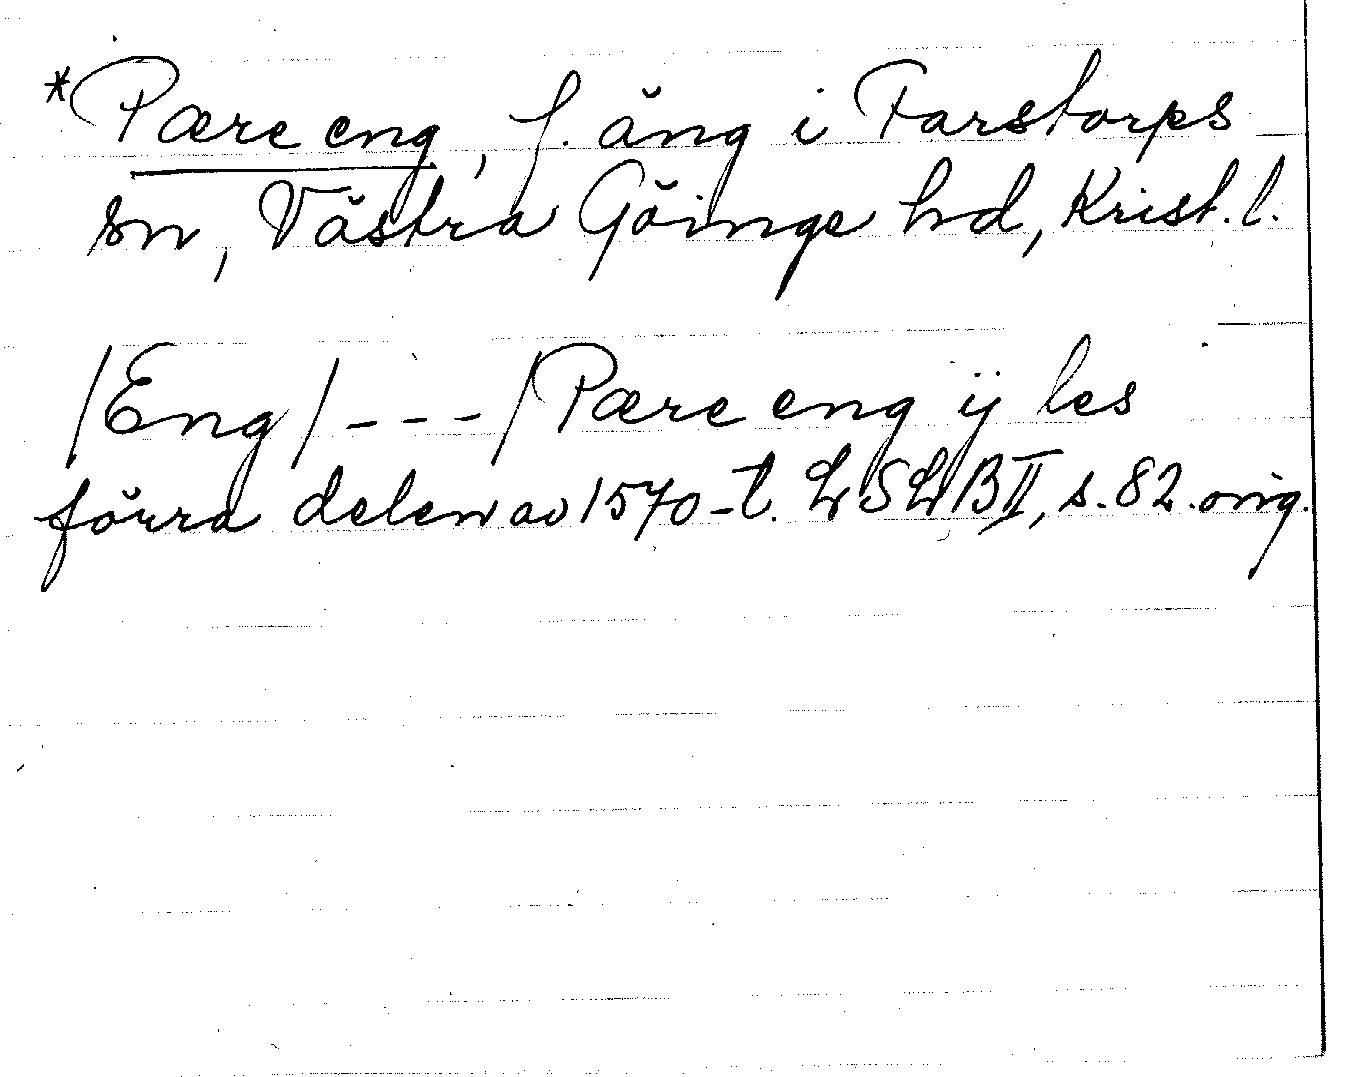 *Pære eng, f. äng i Farstorps
sn, Västra Göinge hd, Krist. l.
/Eng/---/Pære eng ij les
förra delen av 1570-t. LSLB II, s. 82. orig.